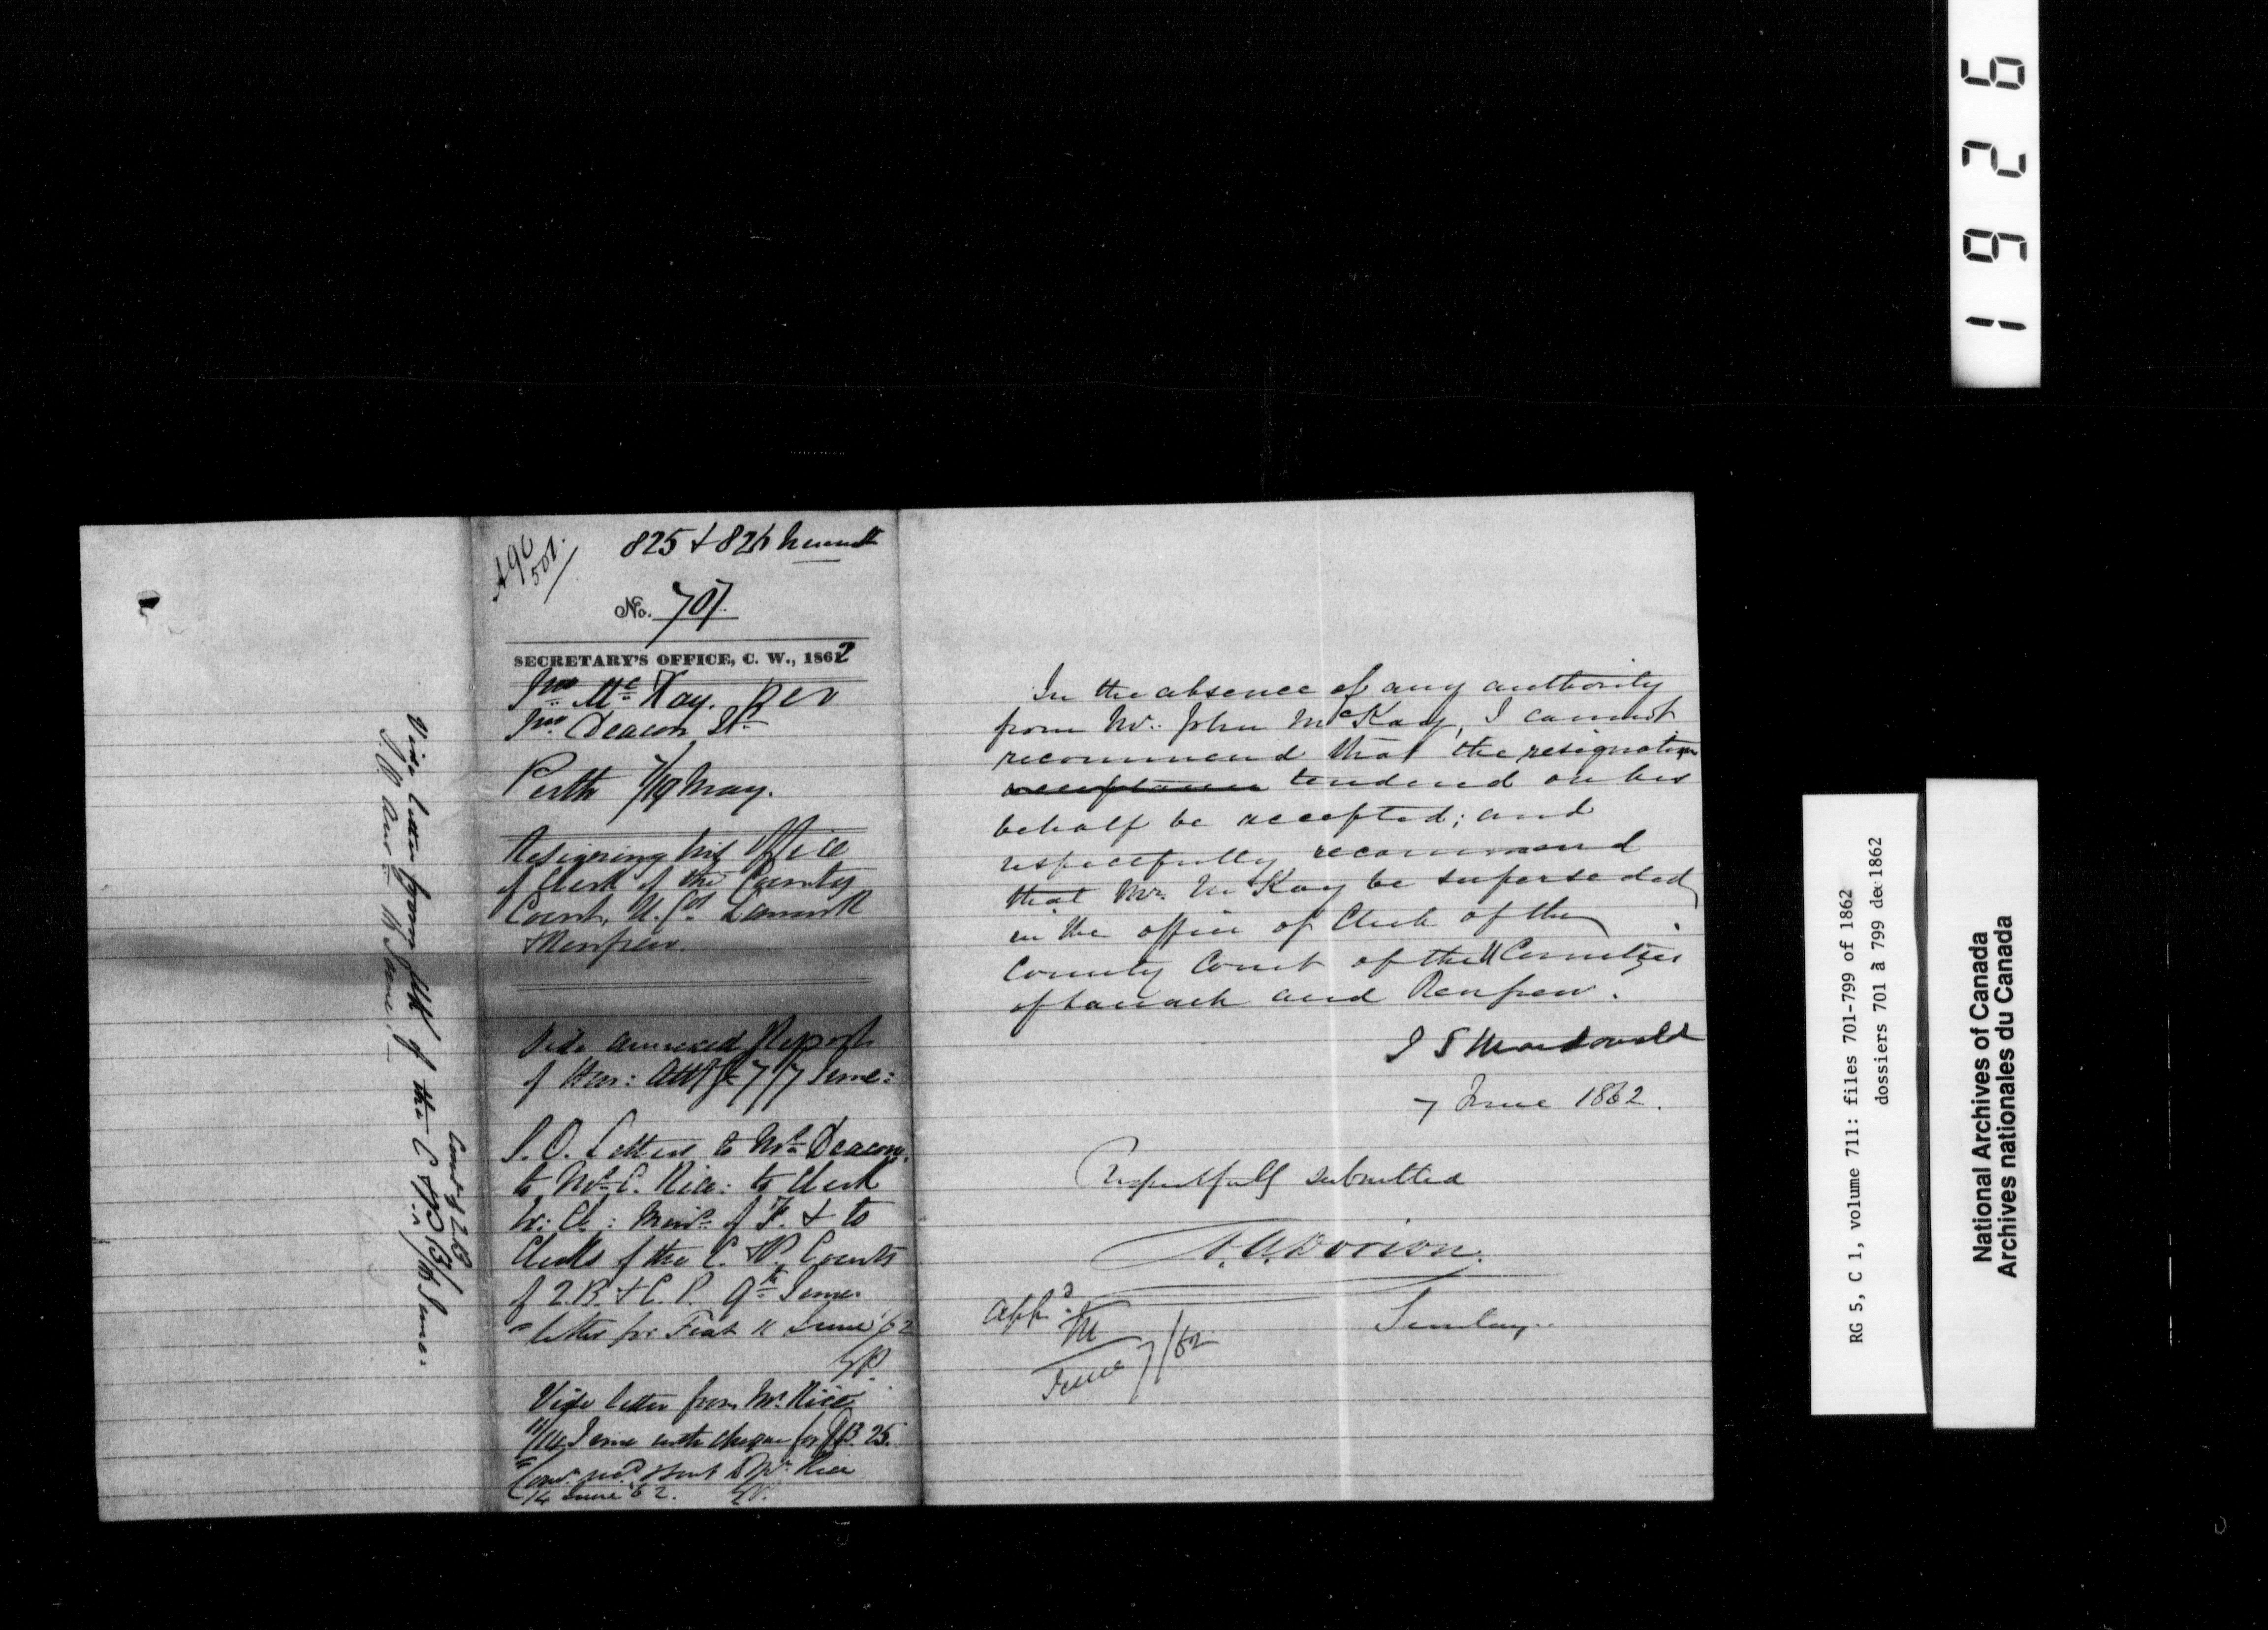 825 & 826
No. 707.
SECRETARY'S OFFICE, C. W., 1862
Jno. McKay. per
Jno. Deacon Jr.
Perth 7/19 May.
Resigning his Office
of Clerk of the County
Court, U. Cos. Lanark
& Renfrew.
Vide annexed Report
of Hon: Atty 7/7 June:
S. O. Letters to Mr. Deacon,
to Mr. C. Rice: to Clerk
Ex: Cl: Minr. of F. & to
Clerks of the C. & P. Courts
of Q. B. & C. P. 9th June.
letter for Fiat 11 June '62
Vide letter from Mr. Rice
11/14 June with cheque for
sent to Mr. Rice
14 June 62.
Vide letter from Clk of the C. of Q. B/
16 June:
In the absence of any authority
from Mr. John McKay, I cannot
recommend that the resignation
acceptance tendered on his
behalf be accepted; and
respectfully recommend
that Mr. McKay be superseded
in the office of Clerk of the
County Court of the U Counties
of Lanark and Renfrew.
J S Macdonald
7 June 1862.
Respectfully submitted
A. A. Dorion.
Appd.
M
June 7/62
1926
RG 5, C 1, volume 711: files 701-799 of 1862
dossiers 701 à 799 de 1862
National Archives of Canada
Archives nationales du Canada